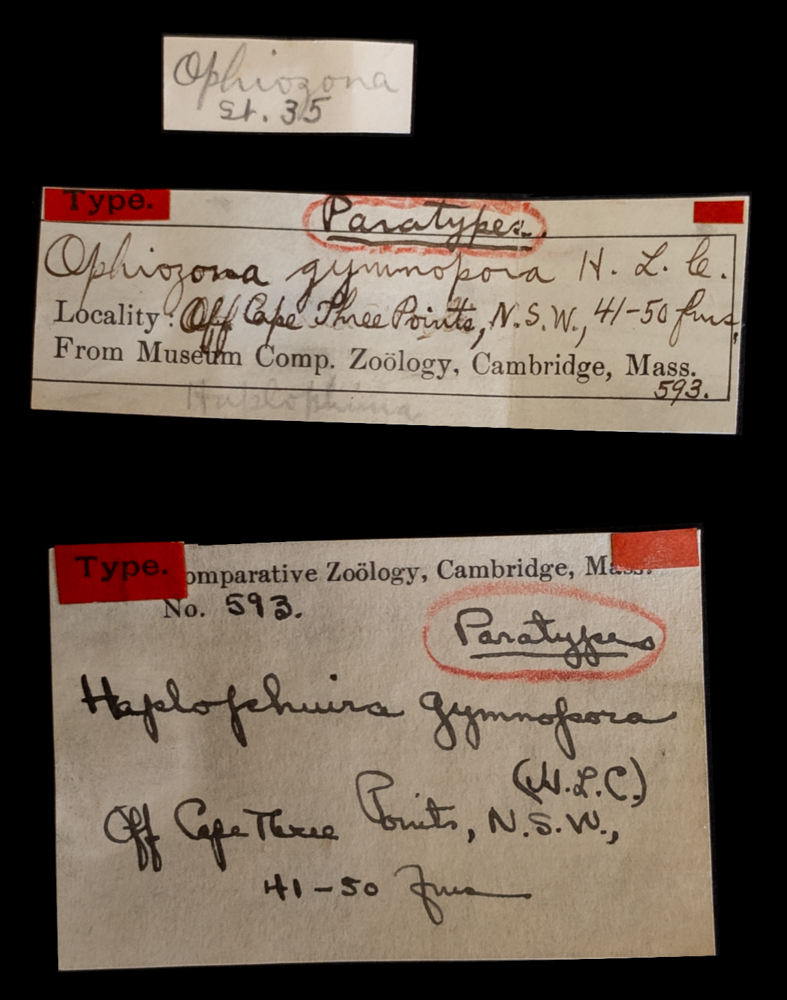 Ophiozona
St. 35
Type.
Paratypes.
Ophiozona gymnopora H. L. C.
Locality: Off Cape Three Points, N.S.W., 41-50 fms,
From Museum Comp. Zoölogy, Cambridge, Mass.
593.
Haplophiura
Type. omparative Zoölogy, Cambridge, Mass.
No. 593.
Paratypes
Haplophuira gymnopora
(H.L.C.)
Off Cape Three Points, N.S.W.,
41-50 fms